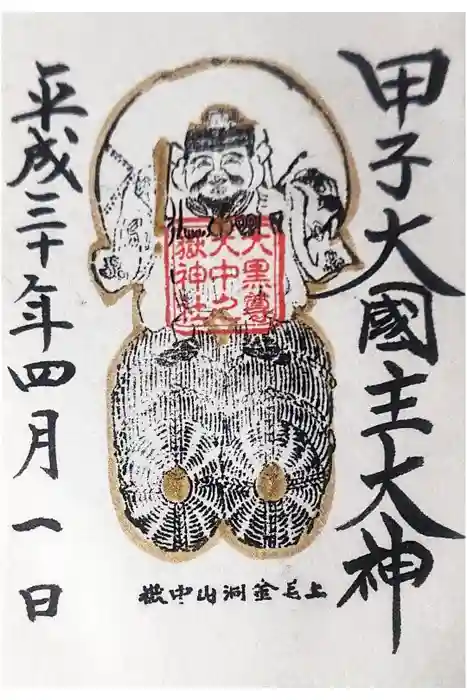 甲子大國主大神
大黒尊
中之
嶽神社
上毛金洞山中嶽
平成三十年四月一日